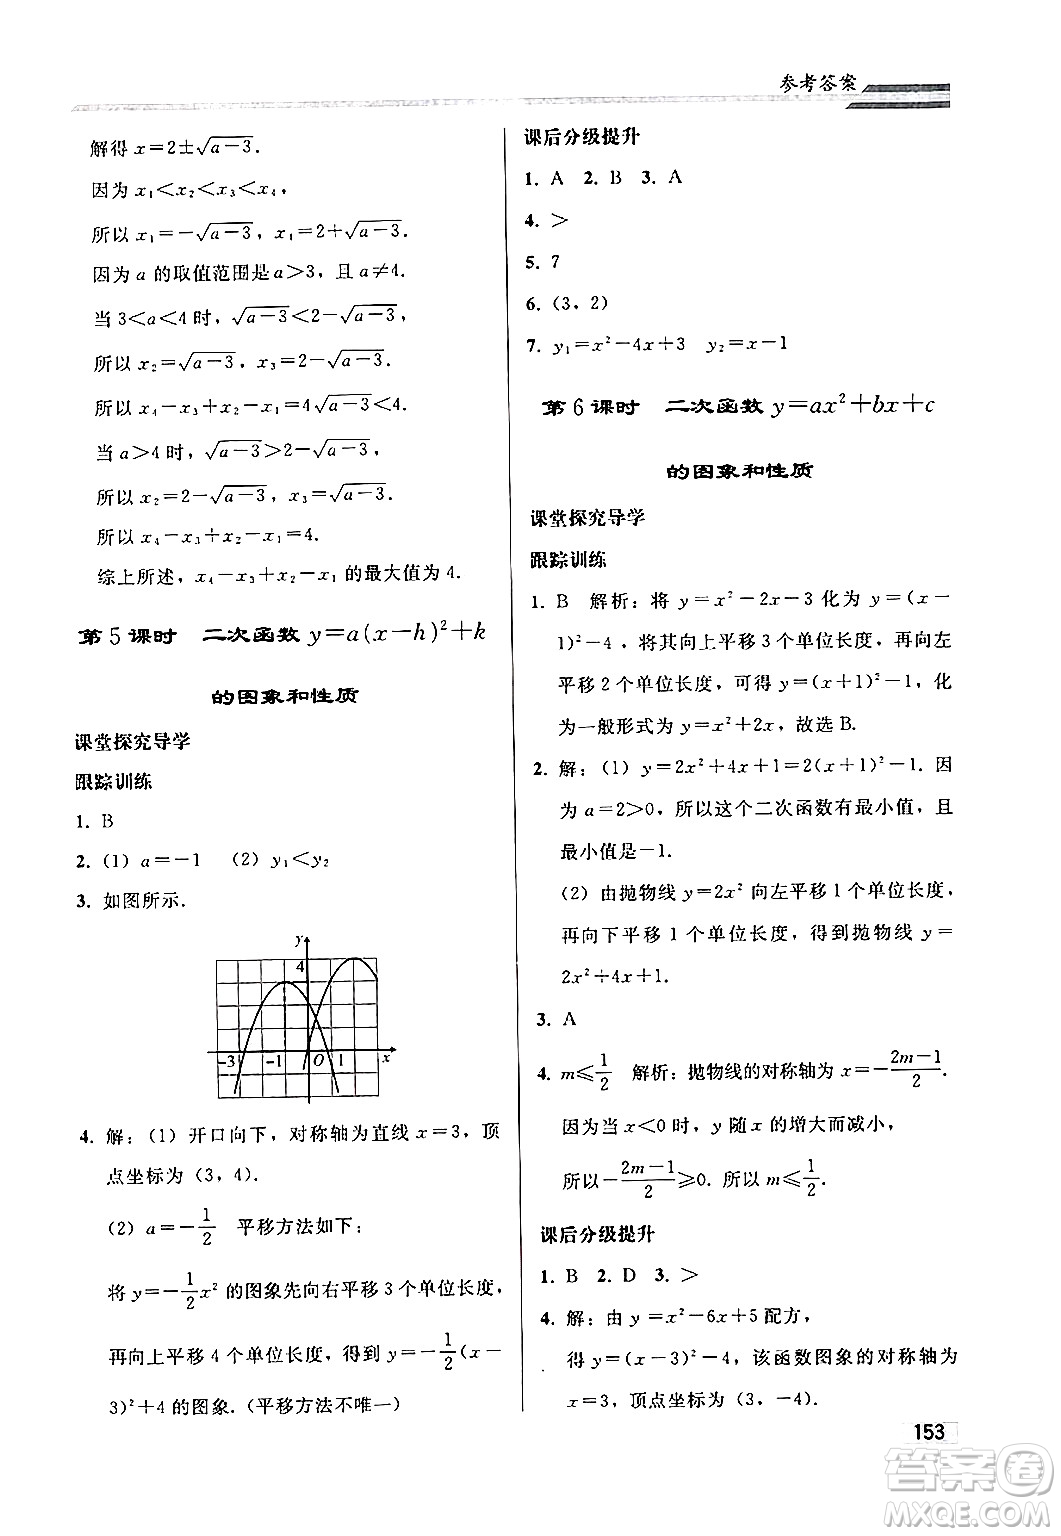 参考答案
解得 x=2±√(a-3).
因为 x₁<x₂<x₃<x₄,
所以 x₁=-√(a-3), x₁=2+√(a-3).
因为 a 的取值范围是 a>3, 且 a≠4.
当 3<a<4 时, √(a-3)<2-√(a-3),
所以 x₂=√(a-3), x₃=2-√(a-3).
所以 x₄-x₃+x₂-x₁=4√(a-3)<4.
当 a>4 时, √(a-3)>2-√(a-3).
所以 x₂=2-√(a-3), x₃=√(a-3).
所以 x₄-x₃+x₂-x₁=4.
综上所述, x₄-x₃+x₂-x₁ 的最大值为 4.
第 5 课时 二次函数 y=a(x-h)²+k
的图象和性质
课堂探究导学
跟踪训练
1. B
2. (1) a=-1 (2) y₁<y₂
3. 如图所示.
y
4
-3 -1 O 1 x
4. 解: (1) 开口向下, 对称轴为直线 x=3, 顶
点坐标为 (3, 4).
(2) a=-1/2 平移方法如下:
将 y=-1/2x² 的图象先向右平移 3 个单位长度,
再向上平移 4 个单位长度, 得到 y=-1/2(x-
3)²+4 的图象. (平移方法不唯一)
课后分级提升
1. A 2. B 3. A
4. >
5. 7
6. (3, 2)
7. y₁=x²-4x+3 y₂=x-1
第 6 课时 二次函数 y=ax²+bx+c
的图象和性质
课堂探究导学
跟踪训练
1. B 解析: 将 y=x²-2x-3 化为 y=(x-
1)²-4, 将其向上平移 3 个单位长度, 再向左
平移 2 个单位长度, 可得 y=(x+1)²-1, 化
为一般形式为 y=x²+2x, 故选 B.
2. 解: (1) y=2x²+4x+1=2(x+1)²-1. 因
为 a=2>0, 所以这个二次函数有最小值, 且
最小值是-1.
(2) 由抛物线 y=2x² 向左平移 1 个单位长度,
再向下平移 1 个单位长度, 得到抛物线 y=
2x²+4x+1.
3. A
4. m≤1/2 解析: 抛物线的对称轴为 x=-(2m-1)/2.
因为当 x<0 时, y 随 x 的增大而减小,
所以-(2m-1)/2≥0. 所以 m≤1/2.
课后分级提升
1. B 2. D 3. >
4. 解: 由 y=x²-6x+5 配方,
得 y=(x-3)²-4, 该函数图象的对称轴为
x=3, 顶点坐标为 (3, -4).
153
答案圈
MXQE.COM